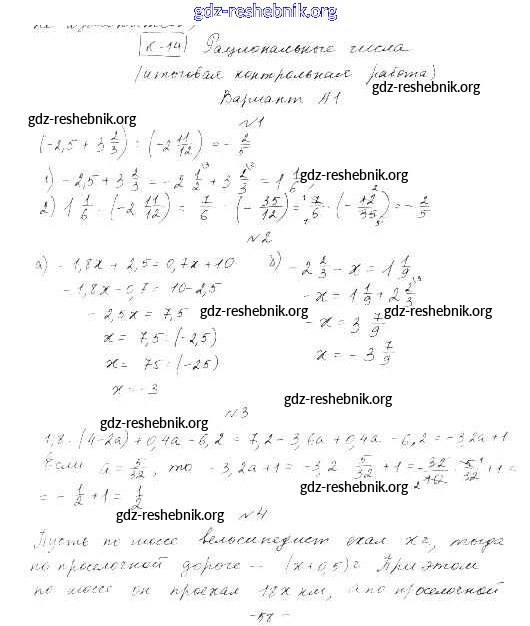 gdz-reshebnik.org
К-14 Рациональные числа
(итоговая контрольная работа)
gdz-reshebnik.org
Вариант А1
gdz-reshebnik.org
№1
(-2,5 + 3 2/3) : (-2 11/12) = - 2/5
1) -2,5 + 3 2/3 = -2 1/2 + 3 2/3 = 1 1/6;
gdz-reshebnik.org
2) 1 1/6 : (-2 11/12) = 7/6 : (- 35/12) = 7/6 · (- 12/35) = - 2/5
№2
а) -1,8x + 2,5 = 0,7x + 10
-1,8x - 0,7 = 10 - 2,5
-2,5x = 7,5
x = 7,5 : (-2,5)
x = 75 : (-25)
x = -3
б) -2 2/3 - x = 1 1/9
-x = 1 1/9 + 2 2/3
-x = 3 7/9
x = -3 7/9
gdz-reshebnik.org
gdz-reshebnik.org
gdz-reshebnik.org
gdz-reshebnik.org
№3
1,8 · (4-2a) + 0,4a - 6,2 = 7,2 - 3,6a + 0,4a - 6,2 = -3,2a + 1
Если a = 5/32, то -3,2a + 1 = -3,2 · 5/32 + 1 = - 32/10 · 5/32 + 1 =
= - 1/2 + 1 = 1/2
gdz-reshebnik.org
gdz-reshebnik.org
№4
Пусть по шоссе велосипедист ехал x г, тогда
по проселочной дороге - (x + 0,5) г. При этом
по шоссе он проехал 18x км, а по проселочной
-58-